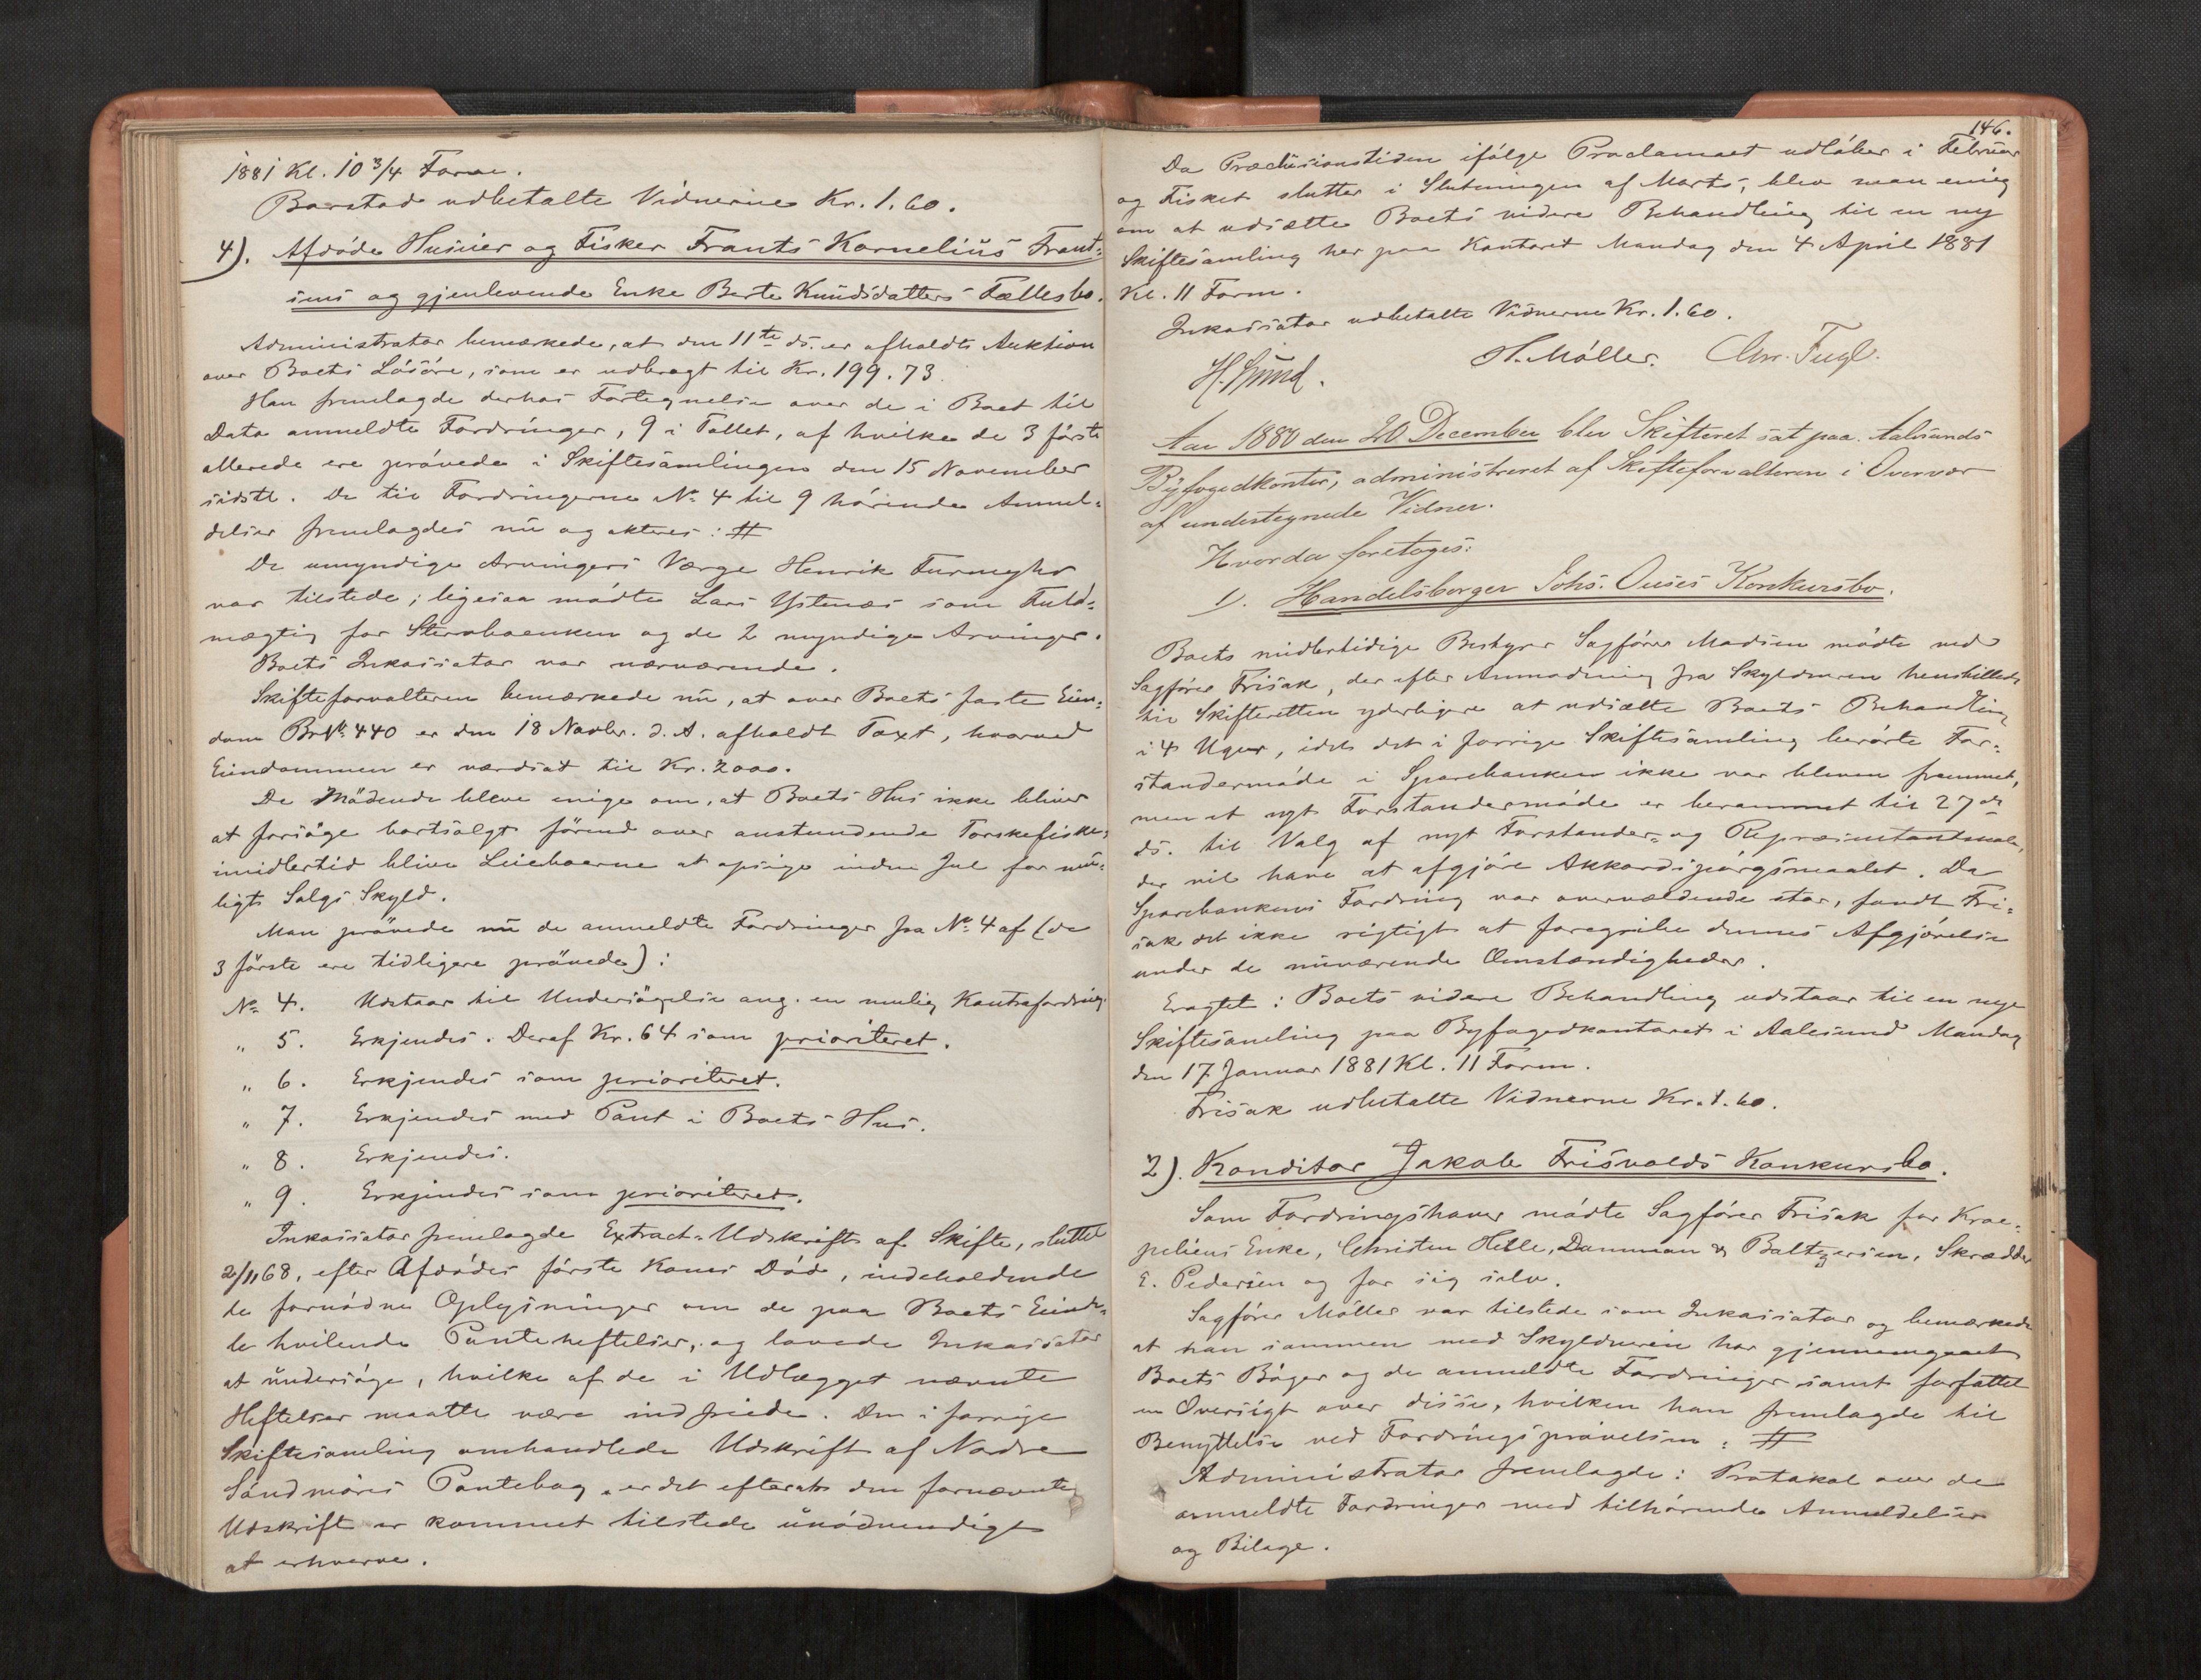 1881 Kl. 10 3/4 Form.
Barstad udbetalte Vidnerne Kr. 1.60.
4). Afdøde Huseier og Fisker Frants Kornelius Frant-
sens og gjenlevende Enke Berte Knudsdatters Fællesbo.
Administrator bemærkede, at den 11te ds. er afholdt Auktion
over Boets Løsøre, som er udbragt til Kr. 199.73.
Han fremlagde derhos Fortegnelse over de i Boet til
Dato anmeldte Fordringer, 9 i Tallet, af hvilke de 3 første
allerede ere prøvede i Skiftesamlingen den 15 November
sidstl. De til Fordringerne No. 4 til 9 hørende Anmel-
delser fremlagdes nu og akteres: #
De umyndige Arvingers Værge Henrik Furmyhr
var tilstede; ligesaa mødte Lars Ystenes som Fuld-
mægtig for Stervboenken og de 2 myndige Arvinger.
Boets Inkassator var nærværende.
Skifteforvalteren bemærkede nu, at over Boets faste Eien-
dom Br No. 440 er den 18 Novbr. d. A. afholdt Taxt, hvorved
Eiendommen er værdsat til Kr. 2000.
De Mødende bleve enige om, at Boets Hus ikke bliver
at forsøge bortsolgt förend over anstundende Torskefiske,
imidlertid bliver Leieboerne at opsige inden Jul for mu-
ligt Salgs Skyld.
Man prøvede nu de anmeldte Fordringer fra No. 4 af (de
3 første ere tidligere prøvede):
No. 4. Udstaar til Undersøgelse ang. en mulig Kontrafordring.
" 5. Erkjendes. Deraf Kr. 64 som prioriteret.
" 6. Erkjendes som prioriteret.
" 7. Erkjendes med Pant i Boets Hus.
" 8. Erkjendes.
" 9. Erkjendes som prioriteret.
Inkassator fremlagde Extract-Udskrift af Skifte, sluttet
2/11 68, efter Afdødes første Kones Død, indeholdende
de fornødne Oplysninger om de paa Boets Eiende-
le hvilende Panteheftelser, og lovede Inkassator
at undersøge, hvilke af de i Udlægget nævnte
Heftelser maatte være indfriede. Den i forrige
Skiftesamling omhandlede Udskrift af Nordre
Søndmøres Pantebog, er det efterat den fornævnte
Udskrift er kommet tilstede unødvendigt
at erhverve.
146.
Da Præclusionstiden ifølge Proclamaet udløber i Februar
og Fisket slutter i Slutningen af Marts, blev man enig
om at udsætte Boets videre Behandling til en ny
Skiftesamling her paa Kontoret Mandag den 4 April 1881
Kl. 11 Form.
Inkassator udbetalte Vidnerne Kr. 1.60.
H. Møller. Chr. Fugl.
Aar 1880 den 20 December blev Skifteret sat paa Aalesunds
Byfogedkontor, administreret af Skifteforvalteren i Overvær
af undertegnede Vidner.
Hvorda foretoges:
1). Handelsborger Johs. Ouses Konkursbo.
Boets midlertidige Bestyrer Sagfører Madsen mødte ved
Sagfører Frisak, der efter Anmodning fra Skyldneren henstillede
til Skifteretten yderligere at udsætte Boets Behandling
i 4 Uger, idet det i forrige Skiftesamling berørte For-
standermøde i Sparebanken ikke var bleven fremmet,
men et nyt Forstandermøde er berammet til 27de
ds. til Valg af nyt Forstander- og Repræsentantskab,
der vil have at afgjøre Akkordspørgsmaalet. Da
Sparebankens Fordring var overvældende stor, fandt Fri-
sak det ikke rigtigt at foregribe dennes Afgjørelse
under de nuværende Omstændigheder.
Eragtet: Boets videre Behandling udstaar til en nye
Skiftesamling paa Byfogedkontoret i Aalesund Mandag
den 17 Januar 1881 Kl. 11 Form.
Frisak udbetalte Vidnerne Kr. 1.60.
2). Konditor Jakob Frisvolds Konkursbo.
Som Fordringshaver mødte Sagfører Frisak for Kroe-
peliens Enke, Christen Helle, Damman & Baltzersen, Skrædder
E. Pedersen og for sig selv.
Sagfører Møller var tilstede som Inkassator og bemærkede
at han sammen med Skyldneren har gjennemgaaet
Boets Bøger og de anmeldte Fordringer samt forfattet
en Oversigt over disse, hvilken han fremlagde til
Benyttelse ved Fordringsprøvelsen: #
Administrator fremlagde: Protokol over de
anmeldte Fordringer med tilhørende Anmeldelser
og Bilage.